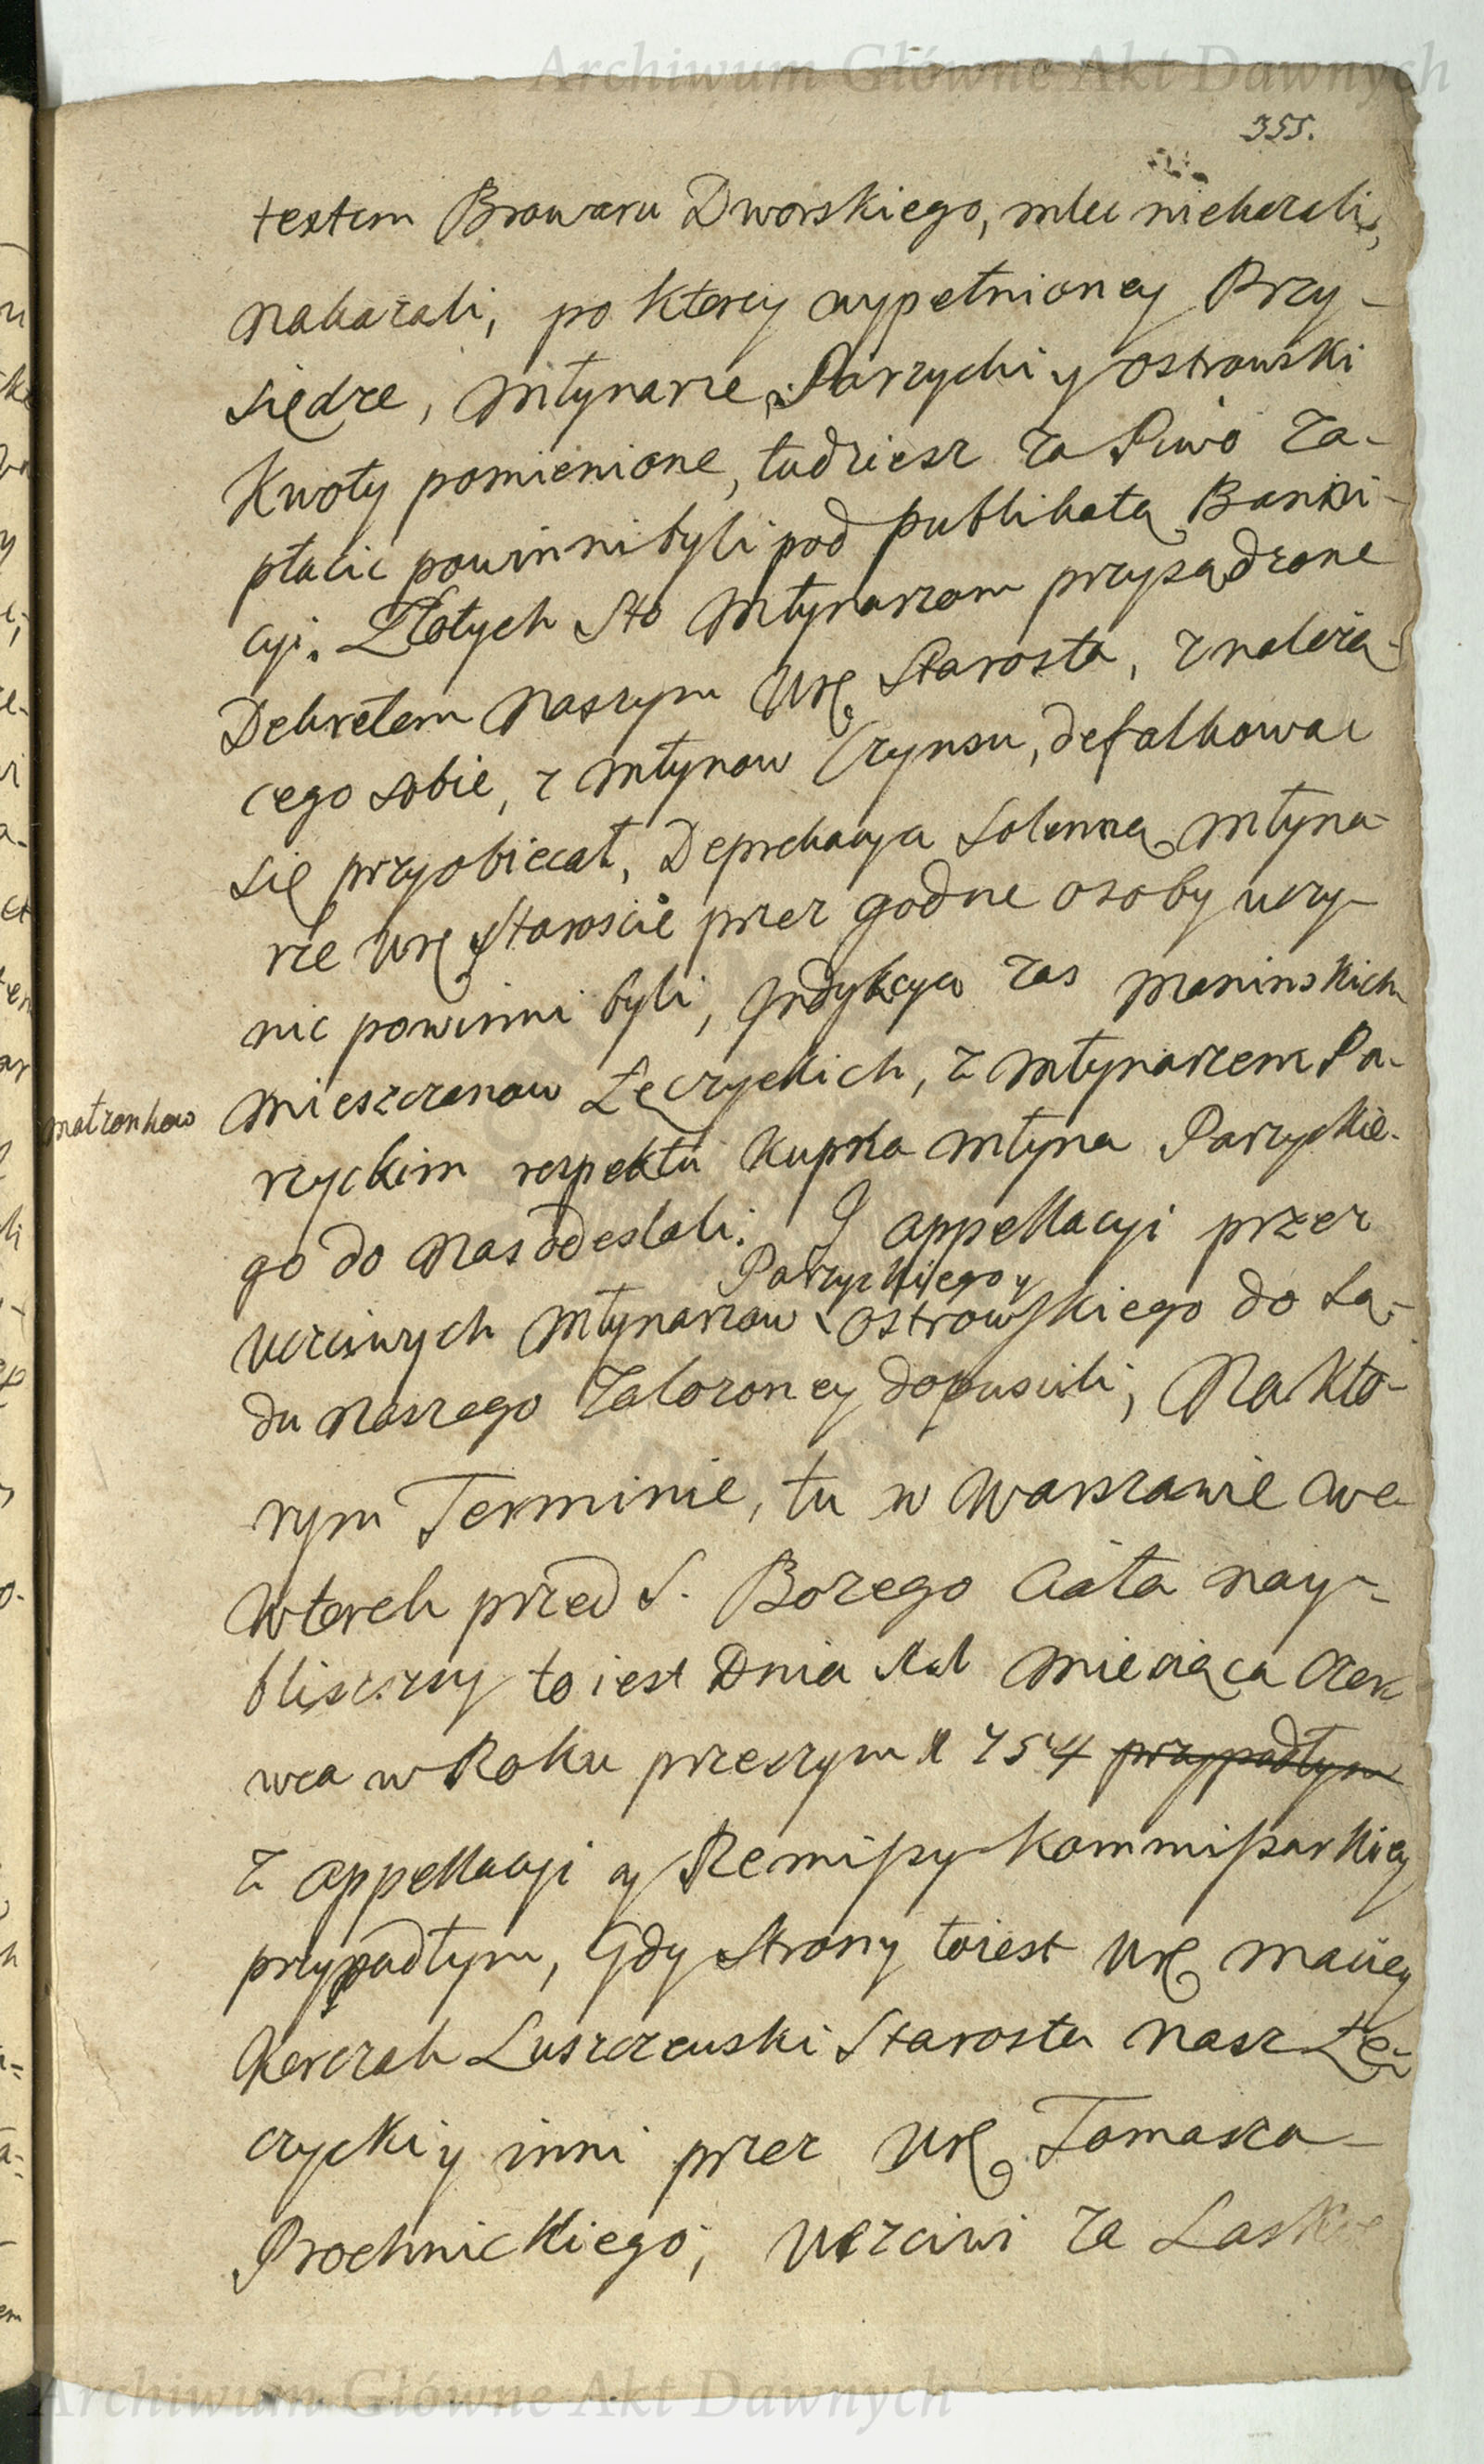 Archiwum Główne Akt Dawnych
355.
textem Browaru Dworskiego, mleć niekazali,
nakazali, po ktorey wypełnioney Przy-
siędze, Młynarze Parzycki y Ostrowski
Kwoty pomienione, tudziesz za Piwo za-
płacic powinni byli pod publikatą Banni-
cyi. Złotych Sto Młynarzom przysądzone
Dekretem Naszym Ur. Starosta, z należą-
cego sobie, z Młynow Czynszu, defalkowac
się przyobiecał, Deprekacya Solenną Młyna-
rze Ur. Staroscie przez godne osoby uczy-
nic powinni byli, Indykcyą zas Maninskich
Małzonkow
Mieszczanow Łęczyckich, z Młynarzem Pa-
rzyckim respektu Kupna Młyna Parzyckie-
go do Nas odesłali. I appellacyi przez
Parzyckiego y
Uczciwych Młynarzow Ostrowskiego do Są-
du Naszego założoney dopuscili, Na kto-
rym Terminie, tu w Warszawie we
Wtorek przed S. Bożego Ciała nay-
bliszszy to iest Dnia Miesiąca Czer
wca w Roku przeszym 1754 przypadłym
z appellacyi y Remissy Kommissarskiey
przypadłym, Gdy Strony toiest Ur. Maciey
Korczak Luszczewski Starosta Nasz Łę-
czycki y inni przez Ur. Tomasza
Prochnickiego, Uczciwi za Laskwe
Archiwum Główne Akt Dawnych